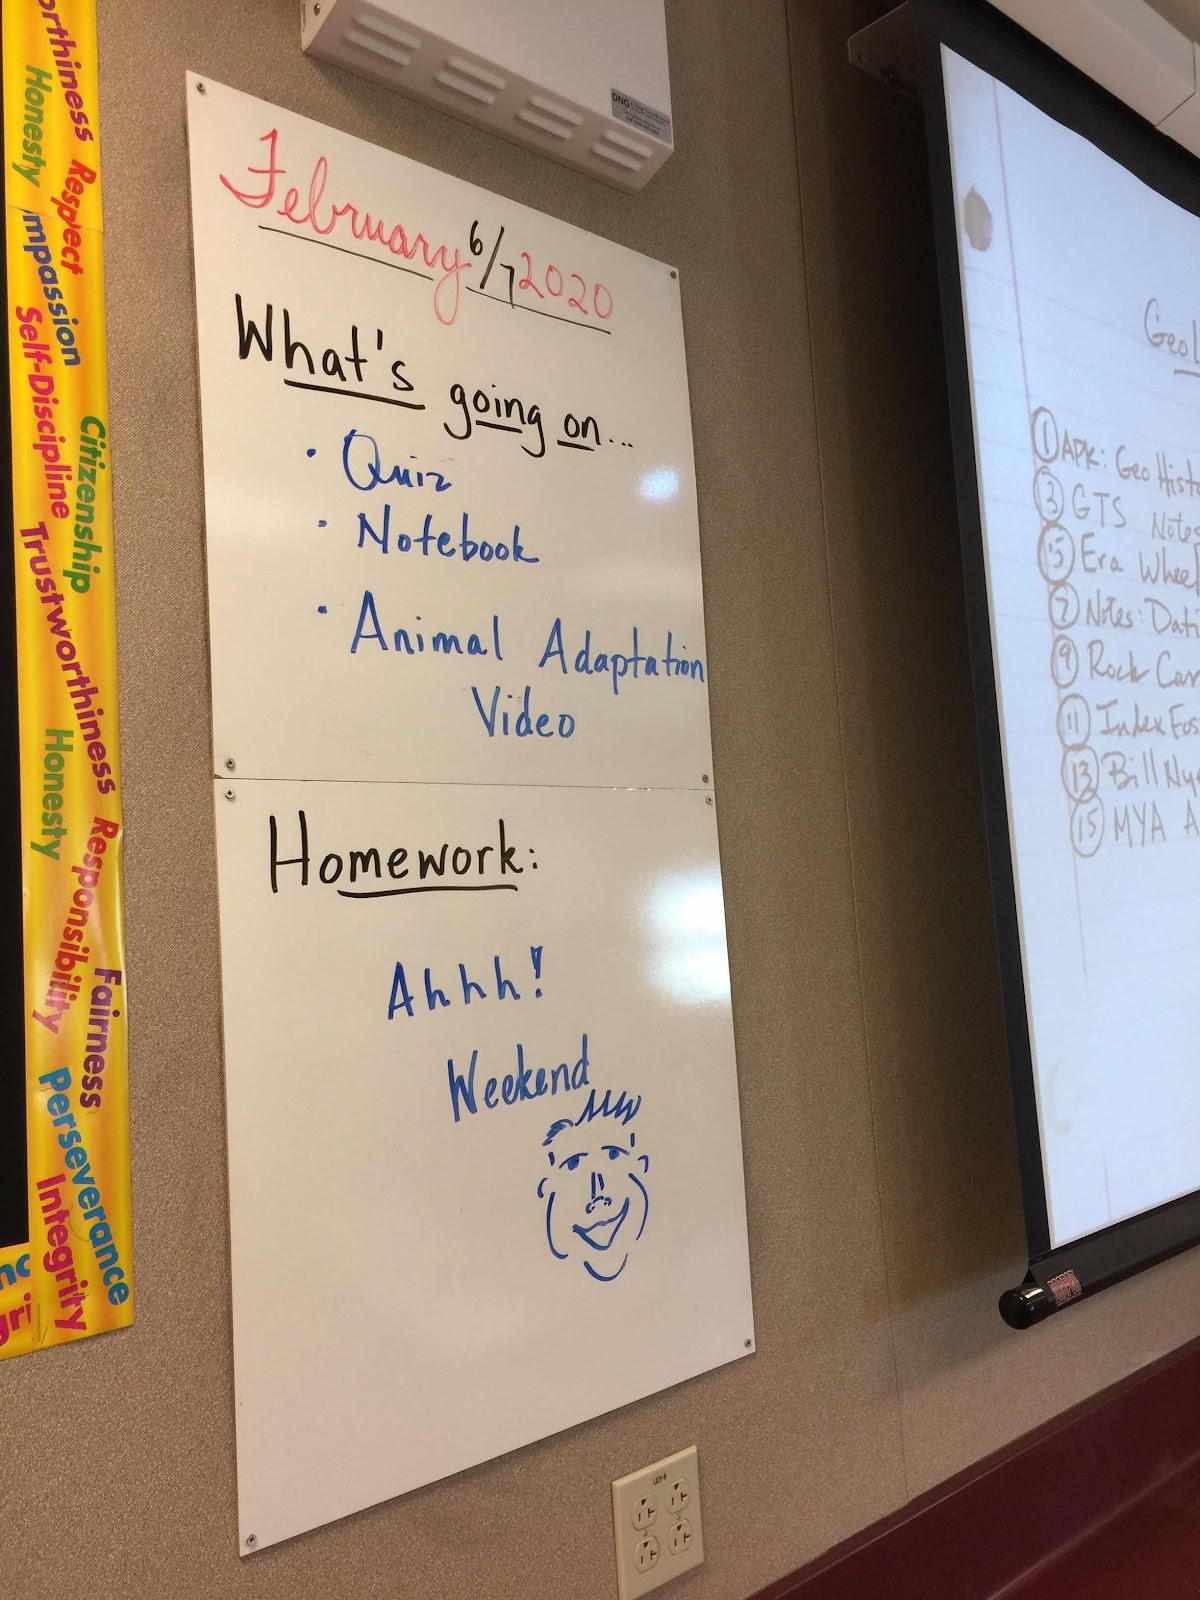 Honesty
Respect
Self-Discipline
Citizenship
Trustworthiness
Honesty
Responsibility
Fairness
Perseverance
Integrity
DNG
February 6/7 2020
What's going on...
· Quiz
· Notebook
· Animal Adaptation
Video
Homework:
Ahhh!
Weekend
Geol
① APK: Geo Histo
③ GTS Notes
⑤ Era Wheel
⑦ Notes: Dati
⑨ Rock Car
⑪ Index Fos
⑬ Bill Ny
⑮ MYA A
DRAPER